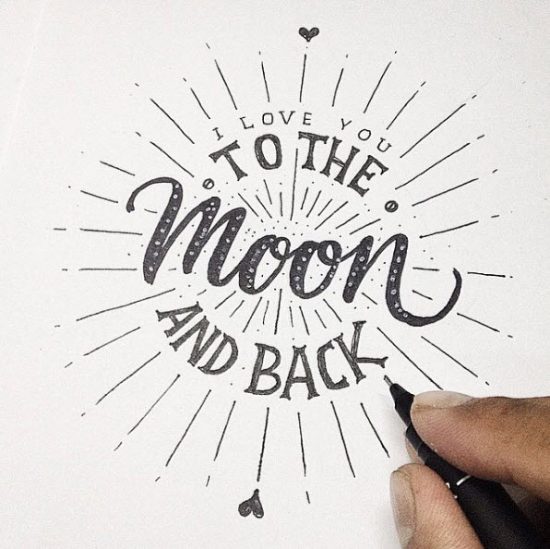 I LOVE YOU
TO THE
Moon
AND BACK